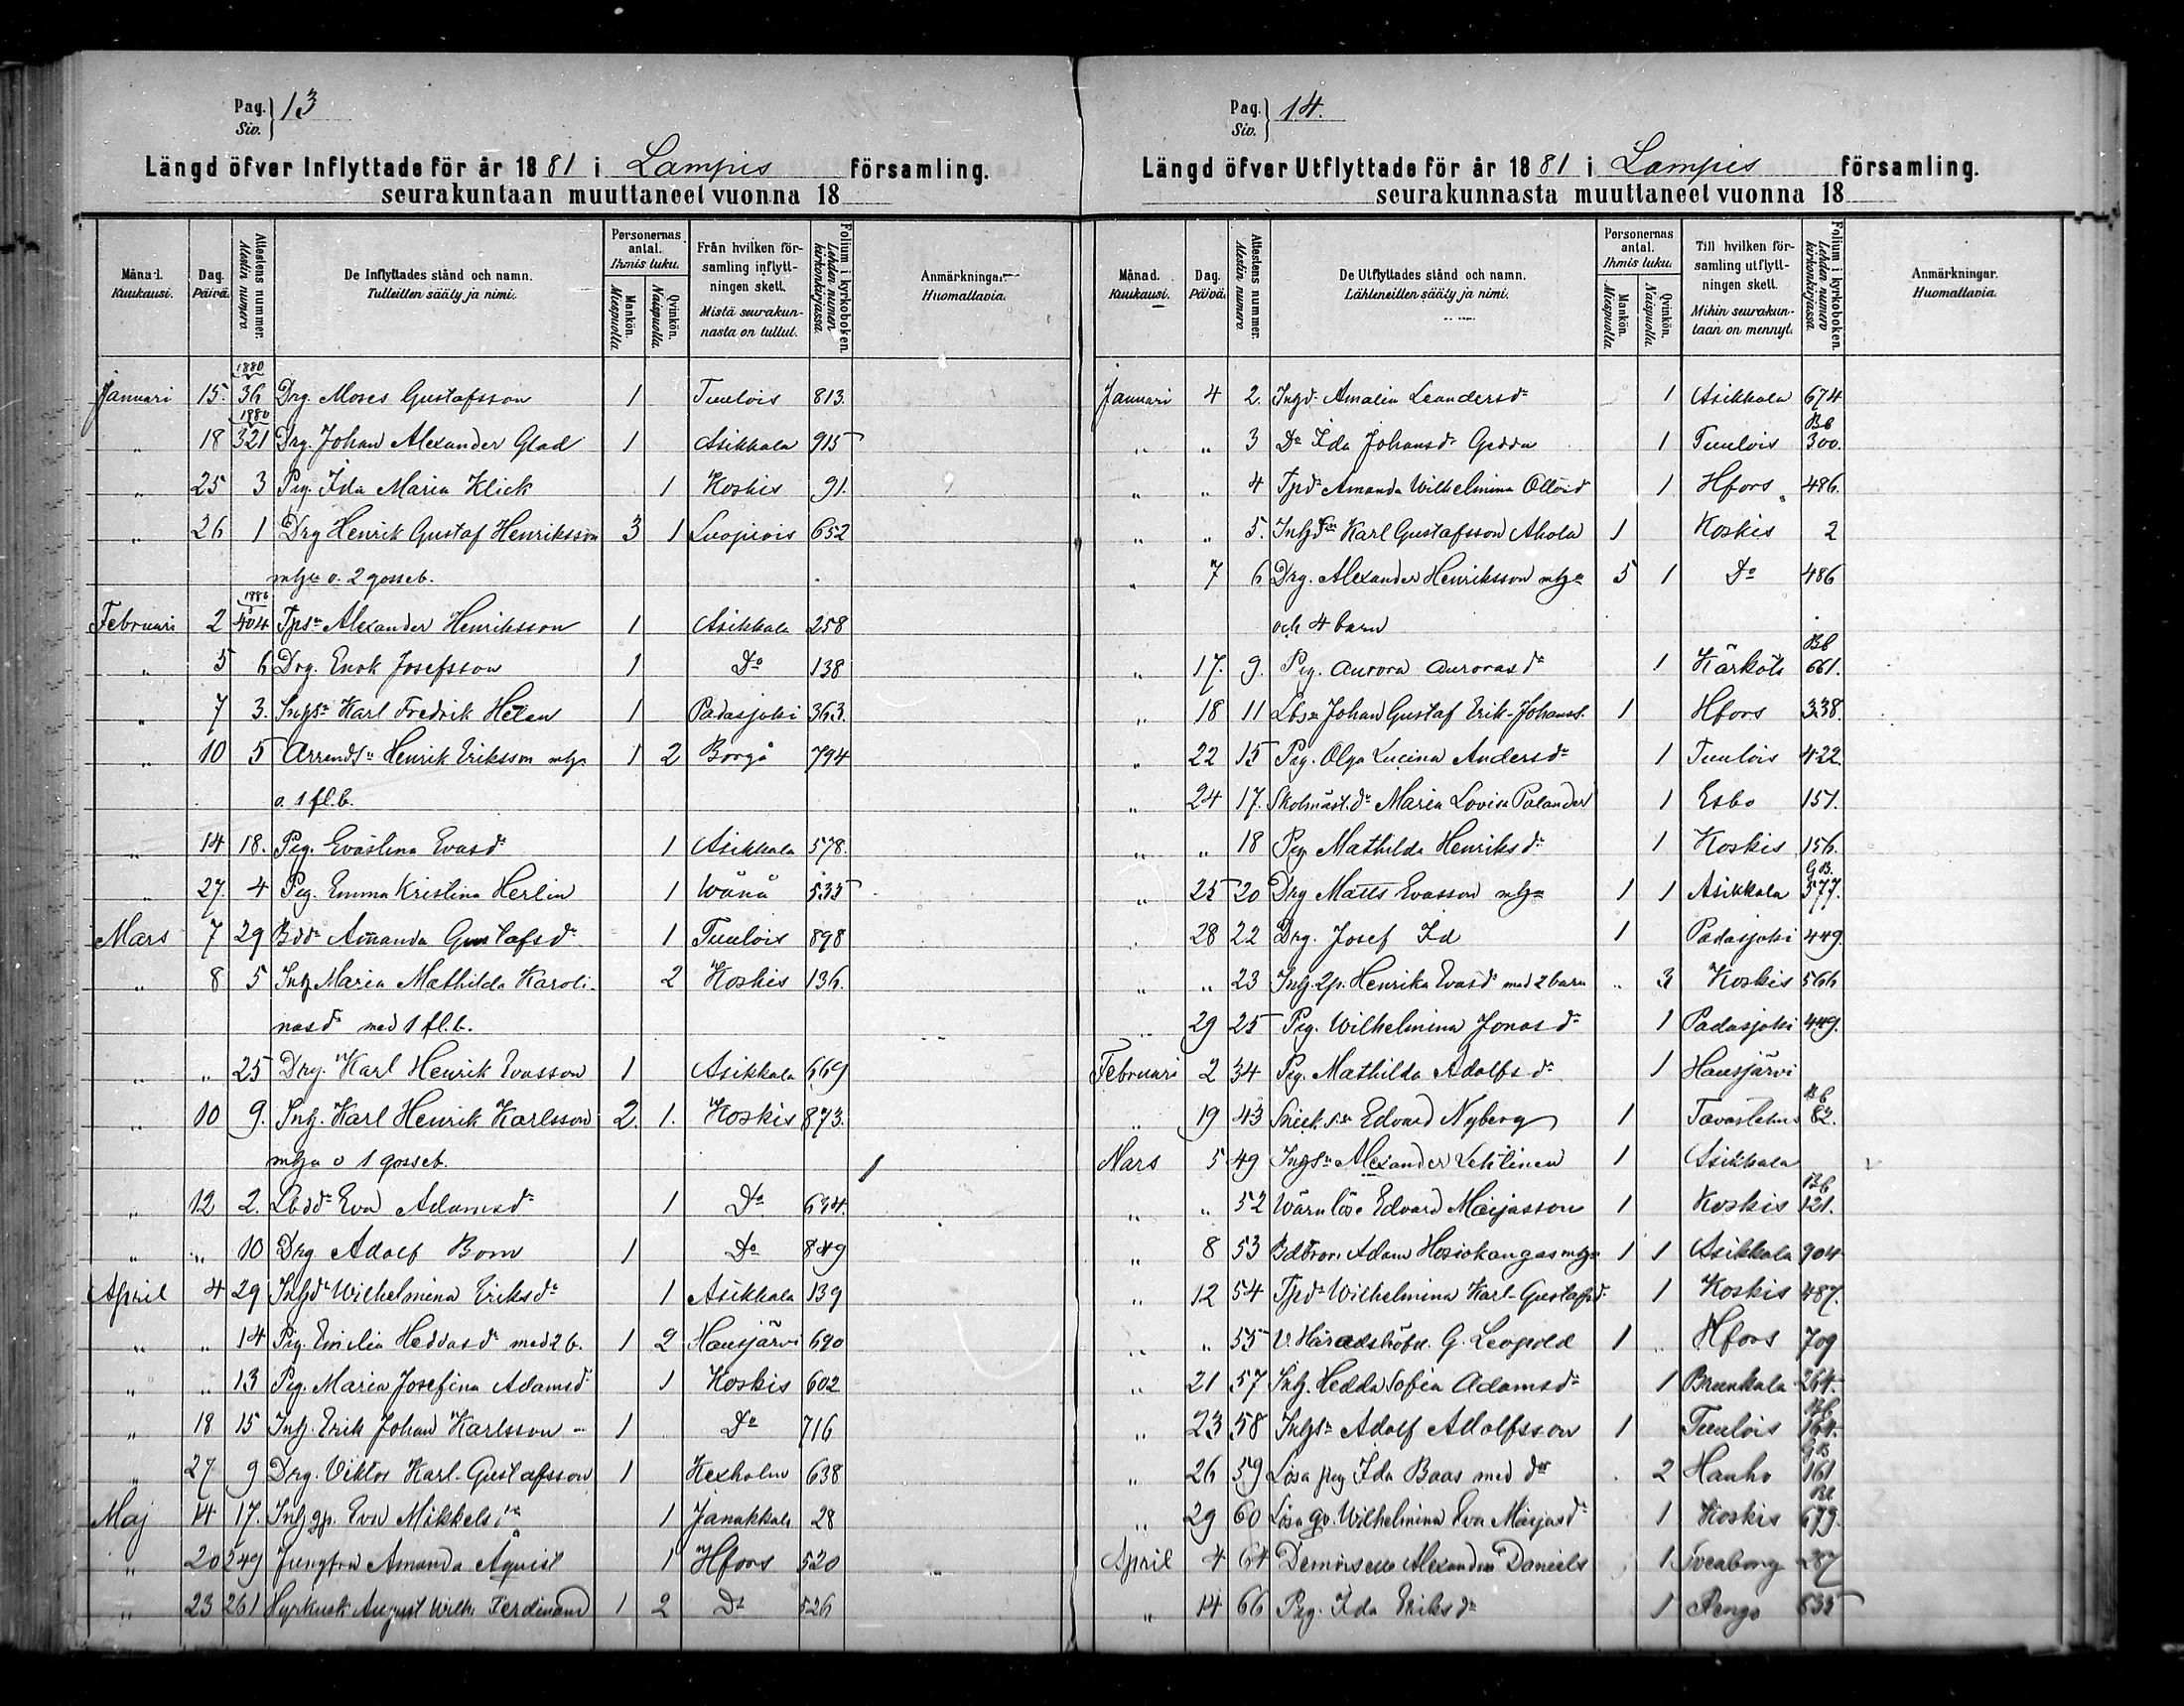 Pag. Siv. 13
Längd öfver Inflyttade för år 1881 i Lampis församling.
seurakuntaan muuttaneet vuonna 18
Månad. Kuukausi. Dag. Päivä. Attestens nummer. Atestin numero. De Inflyttades stånd och namn. Tulleitten sääty ja nimi. Personernas antal. Ihmis luku. Mankön. Miespuolia. Qvinkön. Naispuolia. Från hvilken församling inflyttningen skett. Mistä seurakunnasta on tullut. Folium i kyrkoboken. Lehden numero kirkonkirjassa. Anmärkningar. Huomattavia.
1880
Januari 15. 36 Drg. Moses Gustafsson 1 Tuulois 813.
1880
" 18 321 Drg. Johan Alexander Glad 1 Asikkala 915
" 25 3 Pig. Ida Maria Klick 1 Koskis 91.
" 26 1 Drg Henrik Gustaf Henriksson 3 1 Luopiois 652
mhja o. 2 gosseb.
1880
Februari 2 404 Tjps. Alexander Henriksson 1 Asikkala 258
" 5 6 Drg. Enok Josefsson 1 Do 138
" 7 3. Inhs. Karl Fredrik Helan 1 Padasjoki 363.
" 10 5 Arrends. Henrik Eriksson mhja 1 2 Borgå 794
o. 1 fl.b.
" 14 18. Pig. Evastina Evasdr 1 Asikkala 578.
" 27. 4 Pig. Emma Kristina Herlin 1 Wånå 535
Mars 7 29 Bddr Amanda Gustafsdr 1 Tuulois 898
" 8 5 Inh Maria Mathilda Karoli- 2 Koskis 136.
nasdr med 1 fl.b.
" " 25 Drg. Karl Henrik Evasson 1 Asikkala 669
" 10 9. Inh. Karl Henrik Karlsson 2. 1. Koskis 873.
mhja o 1 gosseb.
" 12 2. Lbddr Eva Adamsdr 1 Do 634.
" " 10 Drg Adolf Bom 1 Do 849
April 4 29 Inhdr Wilhelmina Eriksdr 1 Asikkala 139
" " 14 Pig. Emilia Heddasdr med 2 b. 1 2 Hausjärvi 690
" " 13 Pig. Maria Josefina Adamsdr 1 Koskis 602
" 18 15 Inh. Erik Johan Karlsson 1 Do 716
" 27 9 Drg. Viktor Karl-Gustafsson 1 Kexholm 638
Maj 14 17. Inh gp. Eva Mikkels 1 Janakkala 28
" 20 249 Jungfru Amanda Åqvist 1 Hfors 520
" 23 261 Hyrkusk August Wilh. Ferdinand 1 2 Do 526
Pag. Siv. 14.
Längd öfver Utflyttade för år 1881 i Lampis församling.
seurakunnasta muuttaneet vuonna 18
Månad. Kuukausi. Dag. Päivä. Attestens nummer. Atestin numero. De Utflyttades stånd och namn. Lähteneitten sääty ja nimi. Personernas antal. Ihmis luku. Mankön. Miespuolia. Qvinkön. Naispuolia. Till hvilken församling utflyttningen skett. Mihin seurakuntaan on mennyt. Folium i kyrkoboken. Lehden numero kirkonkirjassa. Anmärkningar. Huomattavia.
Januari 4 2. Inhdr Amalia Leandersdr 1 Asikkala 674
" " 3 Do Ida Johansdr Gedda 1 Tuulois Bb 300.
" " 4 Tjpdr Amanda Wilhelmina 1 Hfors 486.
" " 5. Karl Gustafsson Ahola 1 Koskis 2
" 7 6 Drg. Alexander Henriksson mhja 5 1 Do 486
och 4 barn
" 17. 9. Pig. Aurora Aurorasdr 1 Kärkölä Bb 661.
" 18 11 Lbsn Johan Gustaf Erik-Johanss. 1 Hfors 338.
" 22 15 Pig. Olga Lucina Andersdr 1 Tuulois 422.
" 24 17. Skolmäst.dr Maria Lovisa Palander 1 Esbo 151.
" " 18 Pig Mathilda Henriksdr 1 Koskis 156.
" 25 20 Drg Matts Evasson mhja 1 1 Asikkala GB. 577.
" 28 22 Drg. Josef Id 1 Padasjoki 449
" " 23 Inh. Henrika Evasdr med 2 barn " 3 Koskis 566
" 29 25 Pig. Wilhelmina Jonasdr 1 Padasjoki 449.
Februari 2 34 Pig. Mathilda Adolfsdr 1 Hausjärvi
" 19 43 Edvard Nyberg 1 Tavastehus Bb 82.
Mars 5 49 Inhsn Alexander Lehtinen 1 Asikkala
" " 52 Wärnlöse Edvard Maijasson 1 Koskis Bb 121.
" 8 53 Adam Hosiokangas mhja 1 1 Asikkala 904
" 12 54 Tjpdr Wilhelmina Karl-Gustafsdr 1 Koskis 487.
" " 55 V. Häradshöfd. G. Leopold 1 " Hfors 709
" 21 57 Inh. Hedda Sofia Adamsdr 1 Brunkala 264.
" 23 58 Inhsn Adolf Adolfsson 1 Tuulois Bb 164.
" 26 59 Lösa pig Ida Baas med dr 2 Hauho GB 161
" 29 60 Lösa qv. Wilhelmina Eva Maijasdr 1 Koskis 679.
April 4 64 Demoiselle Alexandra Daniels 1 Sveaborg 287
" 14 66 Pig. Ida Eriksdr 1 Rengo 835